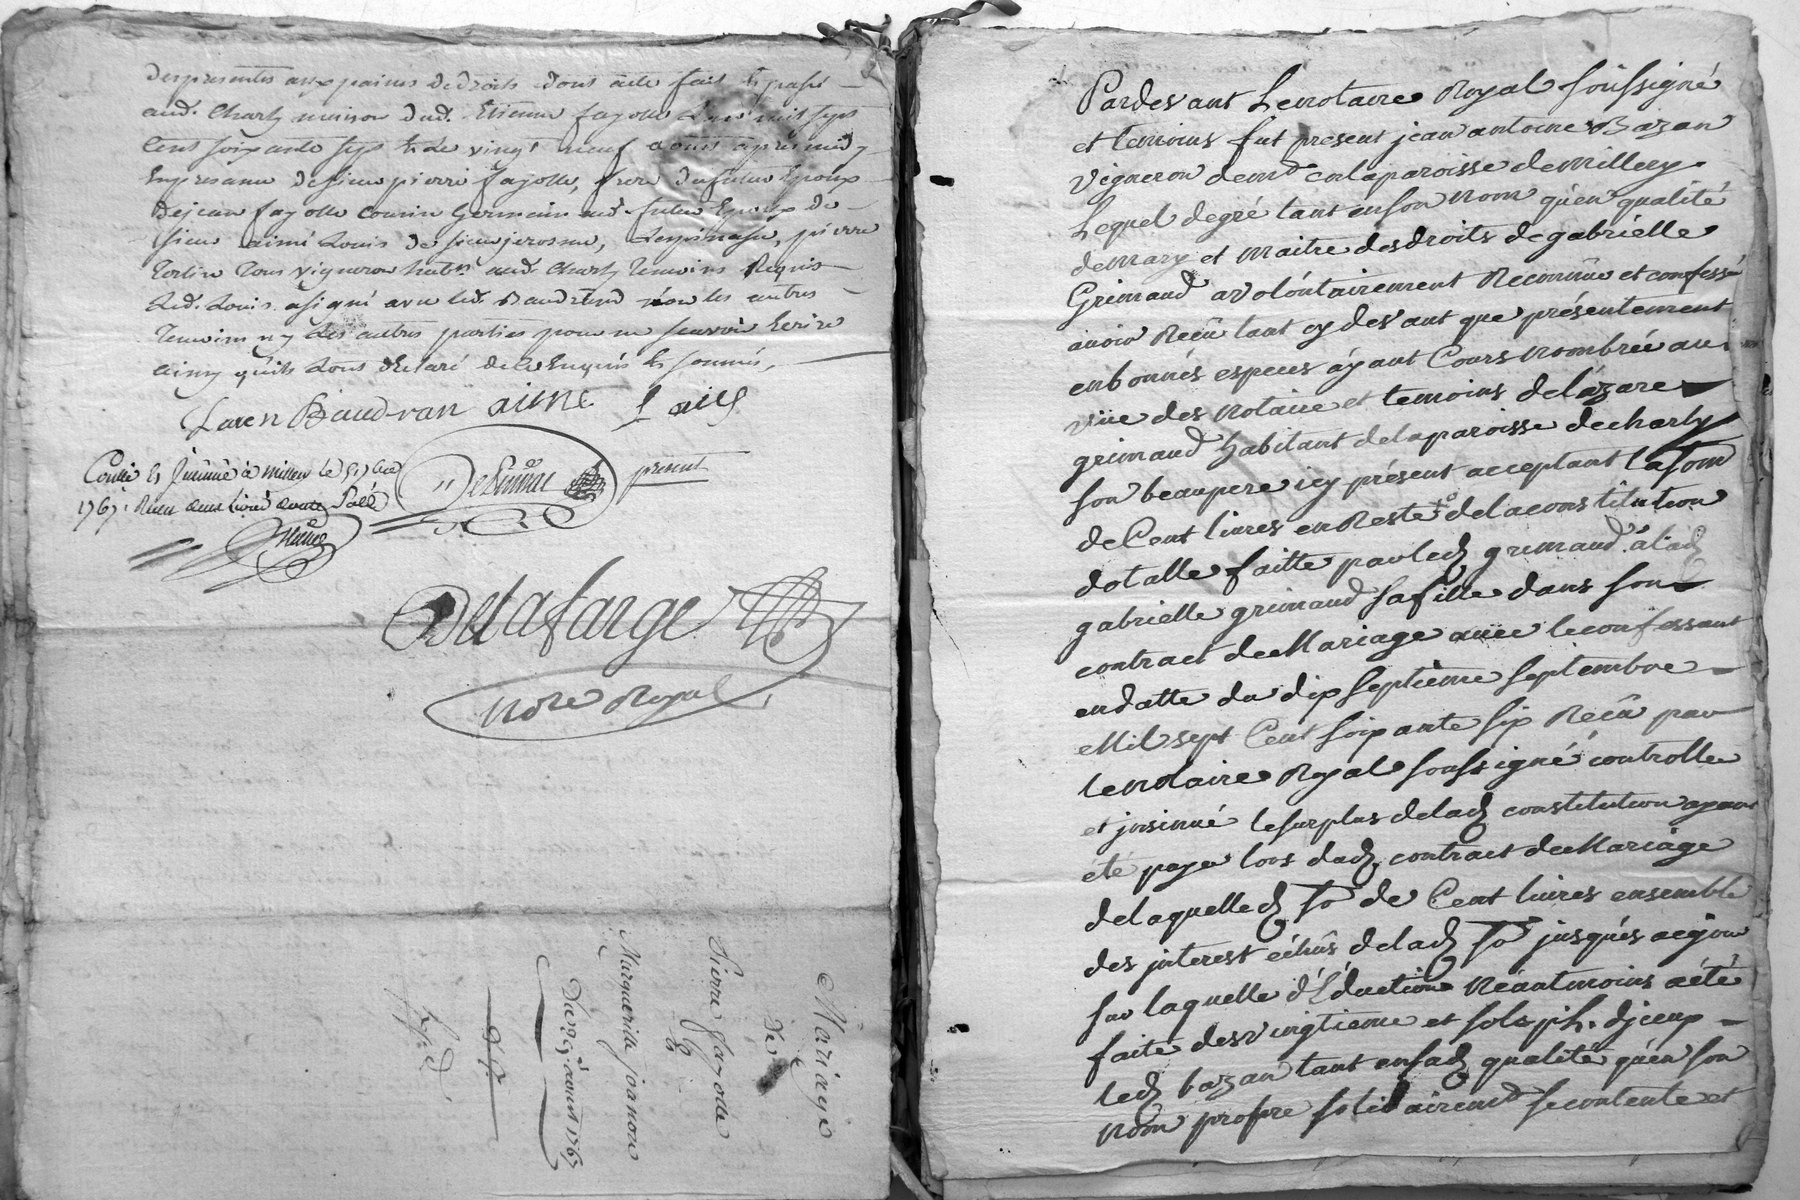 des presentes aux paines de droits dont acte fait et passé
aud. Charly maison dud. Etienne fayolle mil sept
Cent soixante sept le vingt neuf aoust apres midy
En presance de sieur pierre fayolle, frere du futur Epoux
De jean fayolle cousin Germain aud. futur Epoux de
sieur aimé Louis de sieur pierre
tous vignerons aud. Charly temoins Requis
Led. Louis a signé avec led. Baudrand non les autres
temoins ny les autres parties pour ne scavoir Ecrire
ainsy qu'ils ont declaré de ce Enquis et sommés,
Baudran aime Louis
Controllé et à millery le
1767. Recu deux livres douze sols
present
Delafarge
Nore Royal
Mariage
de
Pierre fayolle
&
Marguerite joanon
Du 29 aoust 1767
Expd.
Pardevant Le notaire Royal soussigné
et temoins fut present jean antoine Bazan
vigneron demt en la paroisse de Millery
Lequel de gré tant en son nom qu'en qualité
de mary et maitre des droits de gabrielle
Grimaud a volontairement Reconnu et confessé
avoir Reçu tant cy devant que présentement
en bonnés especes ayant Cours nombrée au
vüe des notaire et temoins de lazare
grimaud habitant de la paroisse de charly
son beaupere icy présent acceptant la som
de Cent livres en Reste de la constitution
dotalle faitte par led grimaud a lad
gabrielle grimaud sa fille dans son
contract de Mariage avec le confessant
en datte du dix septieme septembre
Mil sept Cent soixante six Reçu par
le notaire Royal soussigné controlle
et insinué le surplus de lad constitution ayant
été payé lors dud. contract de Mariage
de laquelle d. so de Cent livres ensemble
des interest échûs de lad so jusqués a ce jour
sur laquelle déduction néantmoins a été
faite des vingtieme et sols pr L. d'iceux
led bazan tant en sad qualité qu'en son
nom propre solidairemt se contente et